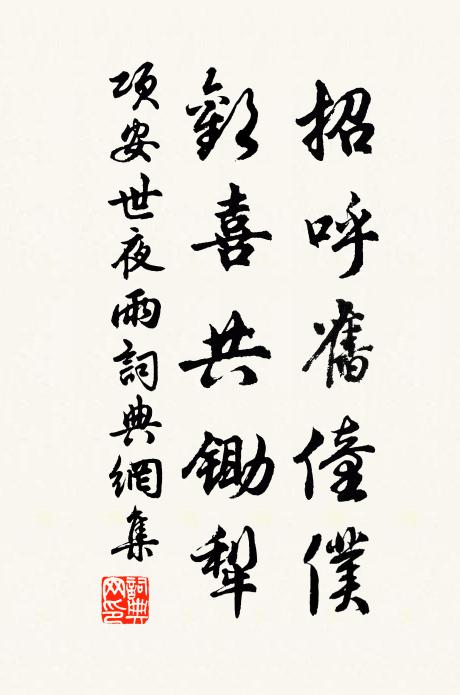 招呼舊僮僕
歡喜共鋤犁
項安世夜雨詞典網集
詞典网印